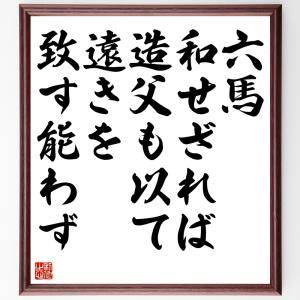 六馬
和せざれば
造父も以て
遠きを
致す能わず